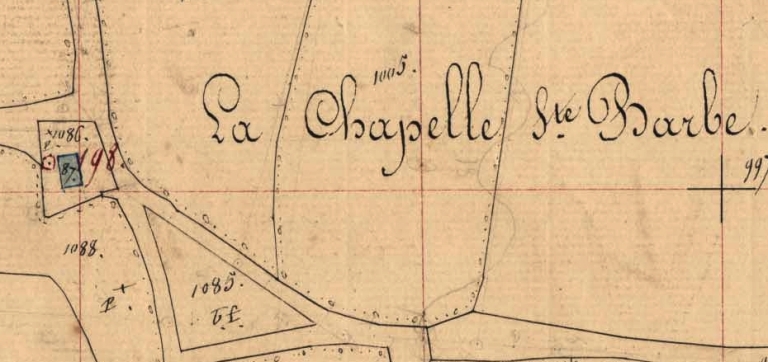 1005.
La Chapelle Ste Barbe.
1086.
87.
198
997
1088.
1085.